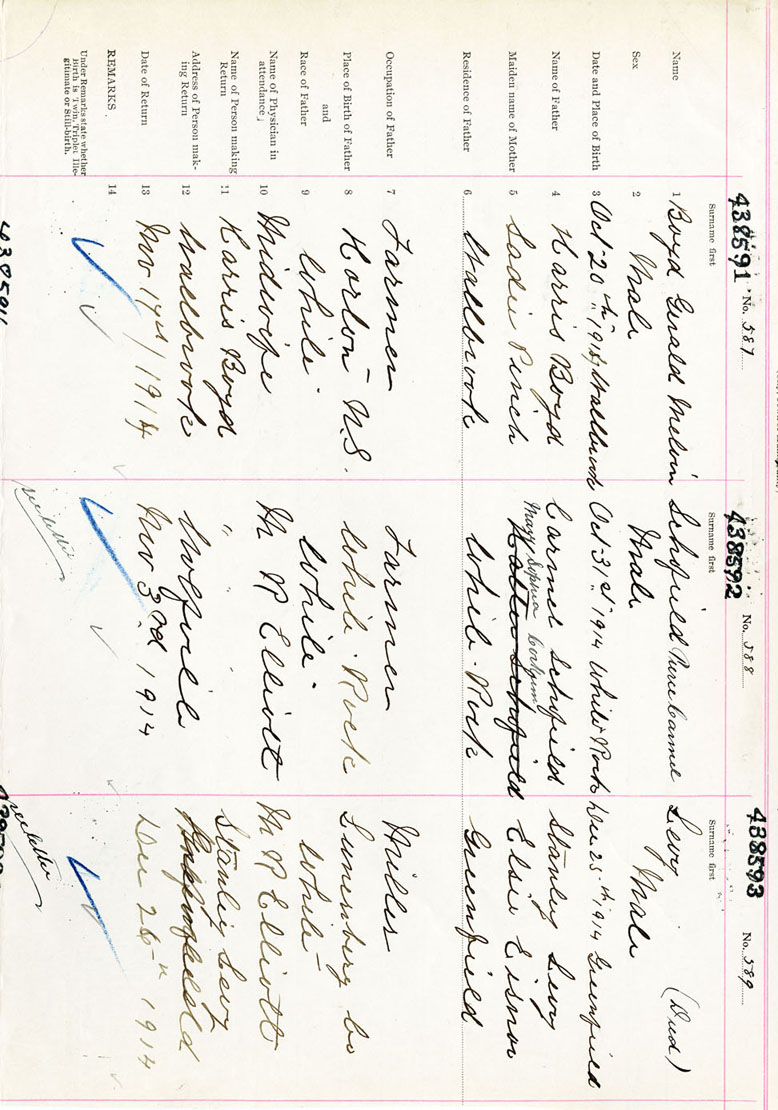 438591 No. 587
438592 No. 588
438593 No. 589
Surname first
Surname first
Surname first
Name 1 Boyd Gerald Melvin
Schofield Carmel
Levy (Dead)
Sex 2 Male
Male
Male
Date and Place of Birth 3 Oct 20th 1914 Wallbrook
Oct 31st 1914 White Rock
Dec 25th 1914 Greenfield
Name of Father 4 Harris Boyd
Carmel Schofield
Stanley Levy
Maiden name of Mother 5 Sadie Pinch
Mary Sophia
Schofield
Elsie Eisnor
Residence of Father 6 Wallbrook
White Rock
Greenfield
Occupation of Father 7 Farmer
Farmer
Miller
Place of Birth of Father 8 Horton N.S.
White Rock
Lunenburg Co
and
Race of Father 9 White
White
White
Name of Physician in attendance 10 Midwife
M R Elliott
M R Elliott
Name of Person making Return 11 Harris Boyd
" "
Stanley Levy
Address of Person making Return 12 Wallbrook
Wolfville
Date of Return 13 Nov 17th / 1914
Nov 3rd 1914
Dec 26th 1914
REMARKS. 14
Under Remarks state whether Birth is Twin, Triplet, Illegitimate or Still-birth.
see letter
see letter